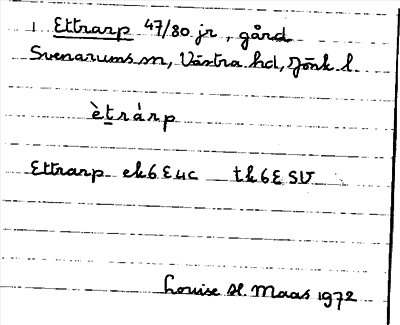 1 Ettrarp 47/80 jr, gård
Svenarums sn, Västra hd, Jönk l.
ètrárp
Ettrarp ek6E4c tk6E5V
Louise H. Maas 1972